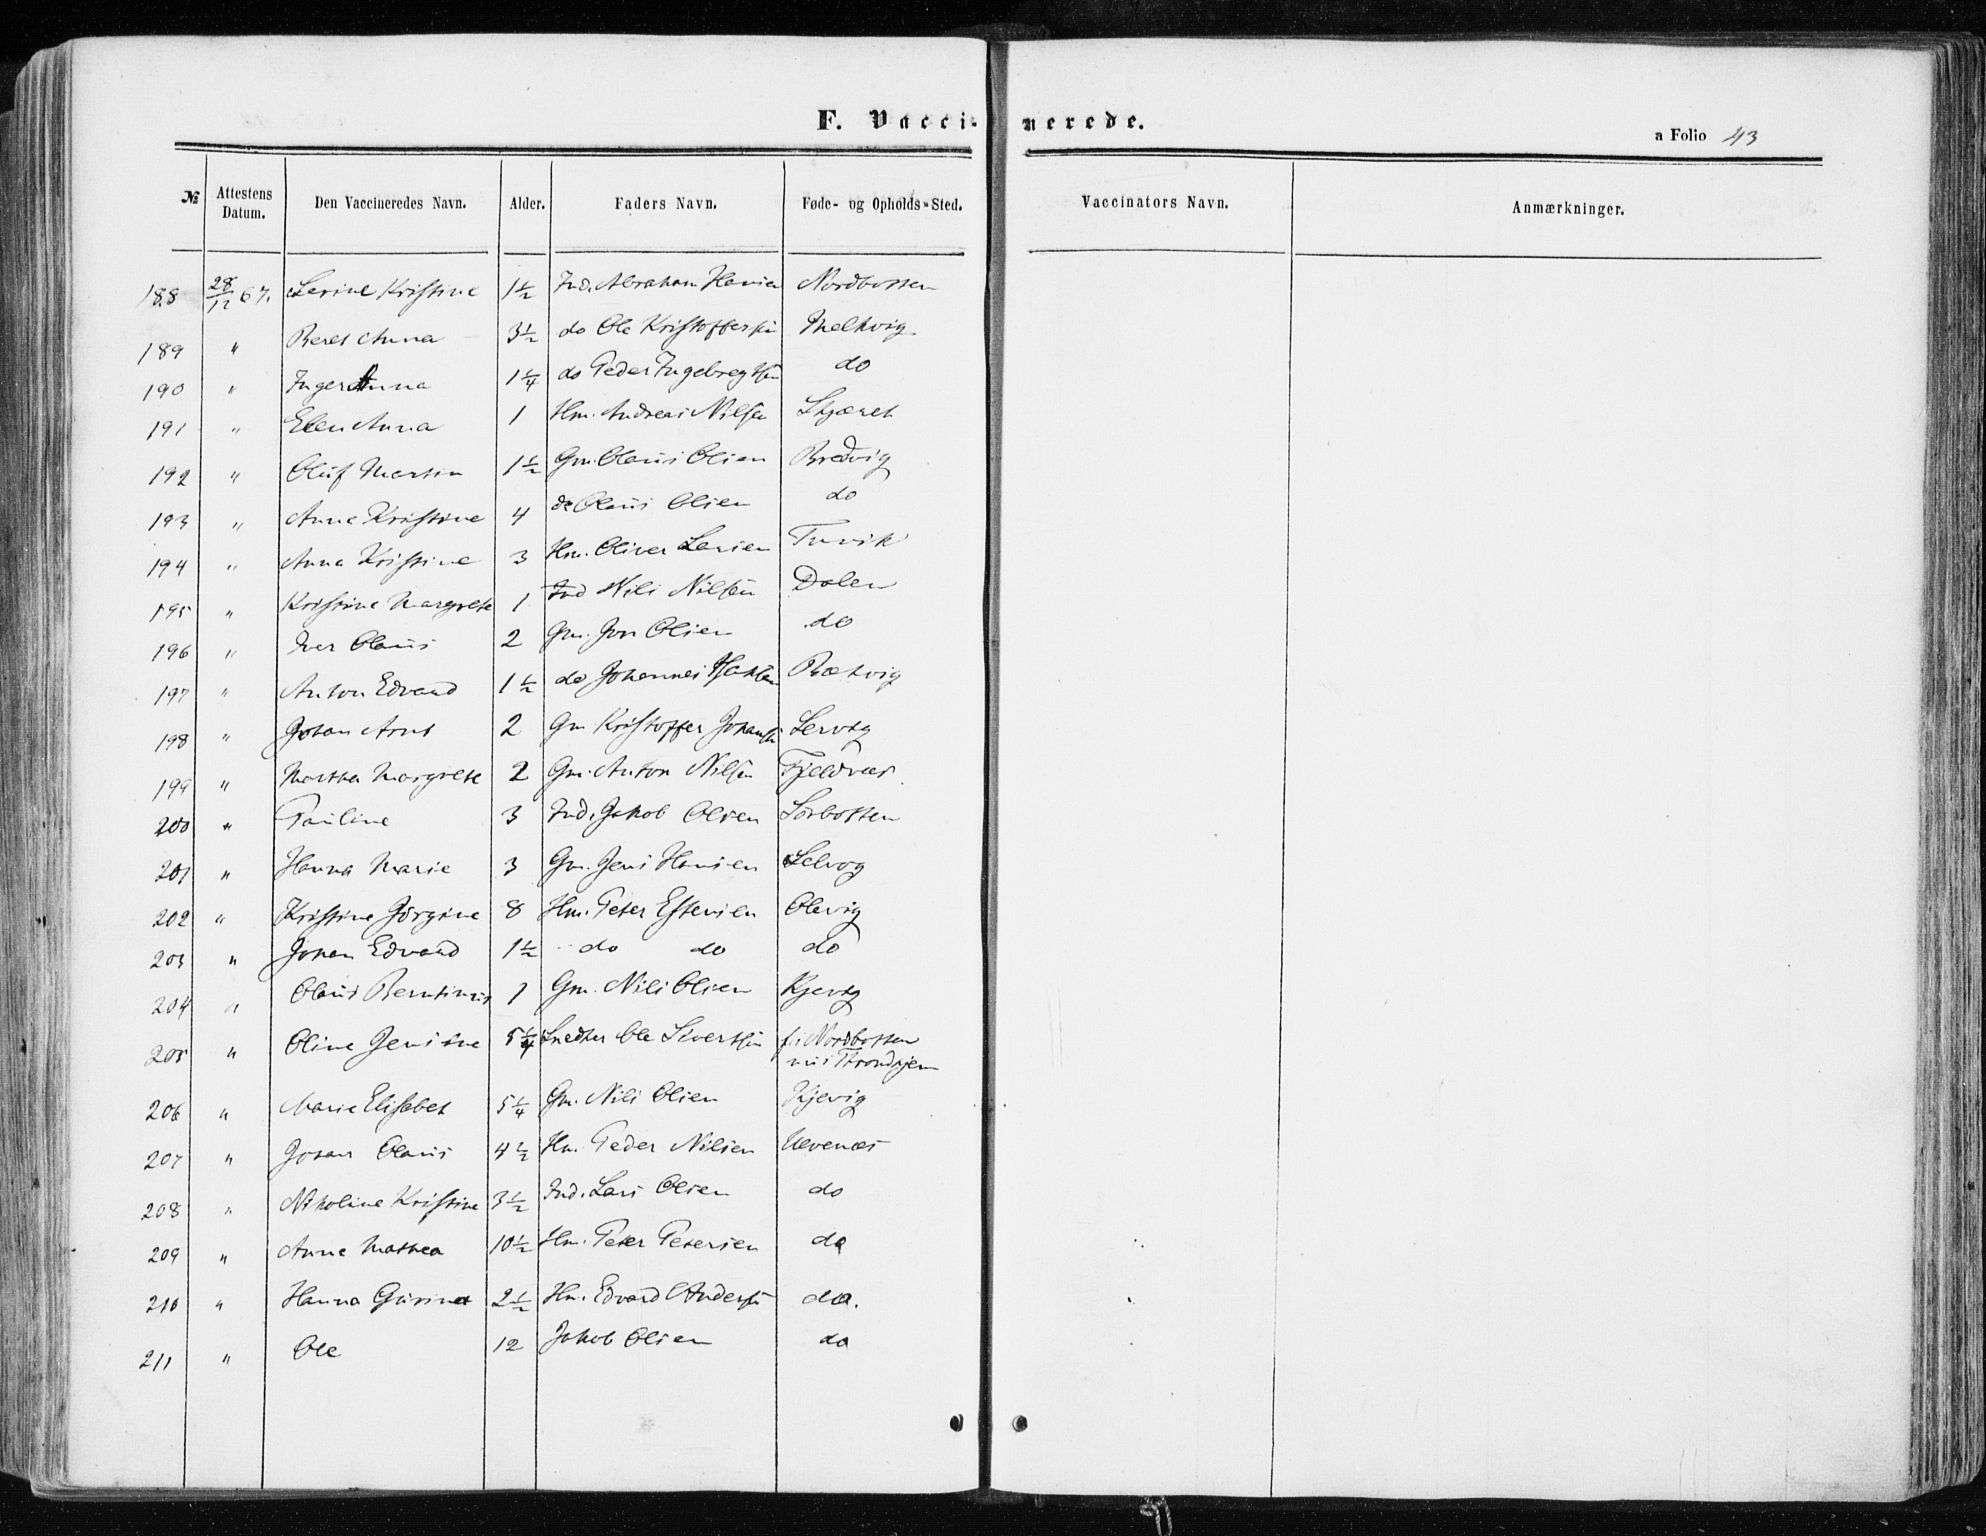 F. Vaccinerede.
a Folio 43
№ Attestens Datum. Den Vaccineredes Navn. Alder. Faders Navn. Føde- og Opholds-Sted. Vaccinators Navn. Anmærkninger.
188 28/12 67. Serine Kristine 1½ Ind. Abraham Hansen Nordbotten
189 " Beret Anna 3½ do Ole Kristoffersen Melkvig
190 " Inger Anna 1¼ do Peder Ingebregtsen do
191 " Elen Anna 1 Hm. Andreas Nilsen Skjæret
192 " Oluf Martin 1½ Gm. Olaus Olsen Bredvig
193 " Anne Kristine 4 do Olaus Olsen do
194 " Anna Kristine 3 Hm. Oliver Larsen Tuvik
195 " Kristine Margrete 1 Ind Nils Nilsen Dalen
196 " Iver Olaus 2 Gm. Jon Olsen do
197 " Anton Edvard 1½ do Johannes Rætvig
198 " Johan Arnt 2 Gm Kristoffer Johansen Servig
199 " Martha Margrete 2 Gm. Anton Nilsen Fjeldvær
200 " Pauline 3 Ind. Jakob Olsen Sørbotten
201 " Hanna Marie 3 Gm. Jens Hansen Selvog
202 " Kristine Jørgine 8 Hm. Peter Estensen Olevig
203 " Johan Edvard 1½ do do do
204 " Olaus Berntinus 1 Gm. Nils Olsen Kjevig
205 " Oline Jensine 5¼ Snedker Ole Sivertsen f. i Nordbotten
nu i Throndhjem
206 " Marie Elisabet 5¼ Gm. Nils Olsen Kjevig
207 " Johan Olaus 4½ Hm. Peder Nilsen Ulvenæs
208 " Nikoline Kristine 3½ Ind. Lars Olsen do
209 " Anne Mathea 10½ Hm. Peter Petersen do
210 " Hanna Gurina 2½ Hm. Edvard Andersen do.
211 " Ole 12 Jakob Olsen do